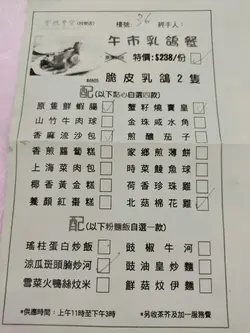 檯號: 36 經手人:
午市乳鴿餐
特價: $238/份
脆皮乳鴿2隻
配(以下點心自選四款)
原隻鮮蝦腸 蟹籽燒賣皇
山竹牛肉球 金珠咸水角
香麻流沙包 煎釀茄子
香煎蘿蔔糕 家鄉煎薄餅
上海菜肉包 時菜鯪魚球
椰香黃金糕 荷香珍珠雞
養顏紅棗糕 北菇棉花雞
配(以下粉麵飯自選一款)
瑤柱蛋白炒飯 豉椒牛河
涼瓜斑頭腩炒河 豉油皇炒麵
雪菜火鴨絲炆米 鮮菇炆伊麵
*供應時間:上午11時至下午3時 *另收茶芥及加一服務費